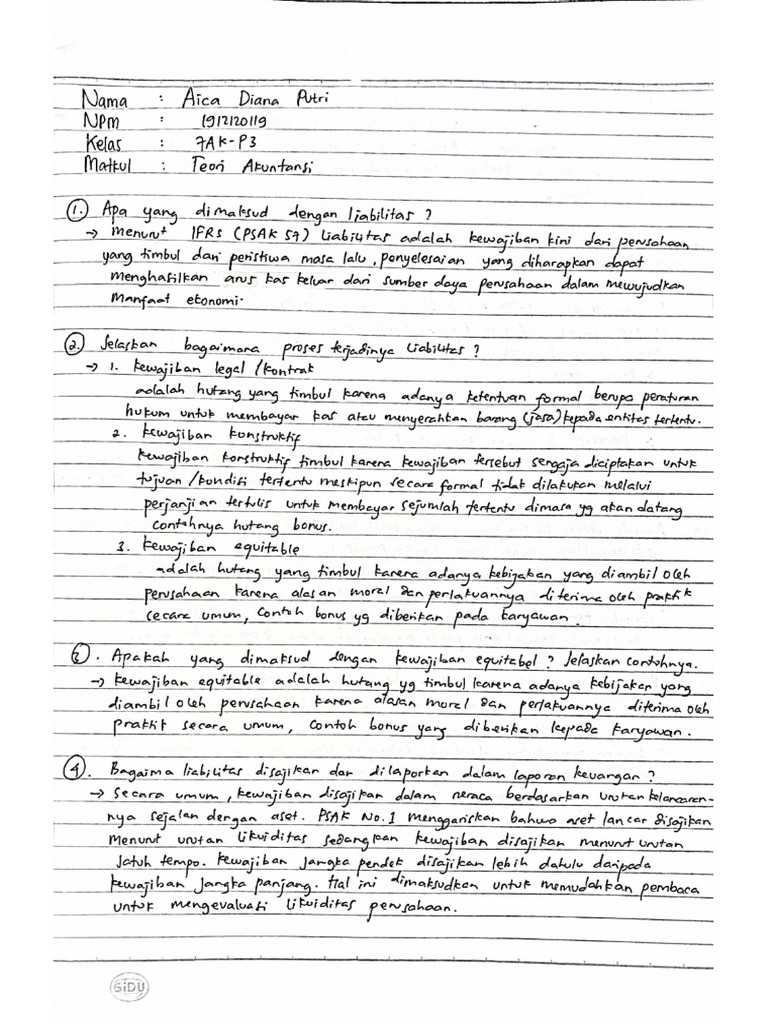 Nama : Aica Diana Putri
NPM : 1912120119
Kelas : 7AK-P3
Matkul : Teori Akuntansi
1. Apa yang dimaksud dengan liabilitas ?
→ Menurut IFRS (PSAK 57) Liabilitas adalah kewajiban kini dari perusahaan
yang timbul dari peristiwa masa lalu, penyelesaian yang diharapkan dapat
menghasilkan arus kas keluar dari sumber daya perusahaan dalam mewujudkan
Manfaat ekonomi.
2. Jelaskan bagaimana proses terjadinya liabilitas ?
→ 1. Kewajiban legal / kontrak
adalah hutang yang timbul karena adanya ketentuan formal berupa peraturan
hukum untuk membayar kas atau menyerahkan barang (jasa) kepada entitas tertentu.
2. Kewajiban konstruktif
kewajiban konstruktif timbul karena kewajiban tersebut sengaja diciptakan untuk
tujuan / kondisi tertentu meskipun secara formal tidak dilakukan melalui
perjanjian tertulis untuk membayar sejumlah tertentu dimasa yg akan datang
contohnya hutang bonus.
3. Kewajiban equitable
adalah hutang yang timbul karena adanya kebijakan yang diambil oleh
perusahaan karena alasan moral dan perlakuannya diterima oleh praktik
secara umum, Contoh bonus yg diberikan pada karyawan.
3. Apakah yang dimaksud dengan kewajiban equitabel ? Jelaskan contohnya.
→ kewajiban equitable adalah hutang yg timbul karena adanya kebijakan yang
diambil oleh perusahaan karena alasan moral dan perlakuannya diterima oleh
praktik secara umum, Contoh bonus yang diberikan kepada karyawan.
4. Bagaima liabilitas disajikan dar dilaporkan dalam laporan keuangan ?
→ Secara umum, kewajiban disajikan dalam neraca berdasarkan urutan kelancaran-
nya sejalan dengan aset. PSAK No.1 menggariskan bahwa aset lancar disajikan
menurut urutan likuiditas sedangkan kewajiban disajikan menurut urutan
jatuh tempo. Kewajiban jangka pendek disajikan lebih dahulu daripada
kewajiban jangka panjang. Hal ini dimaksudkan untuk memudahkan pembaca
untuk mengevaluasi likuiditas perusahaan.
SiDU